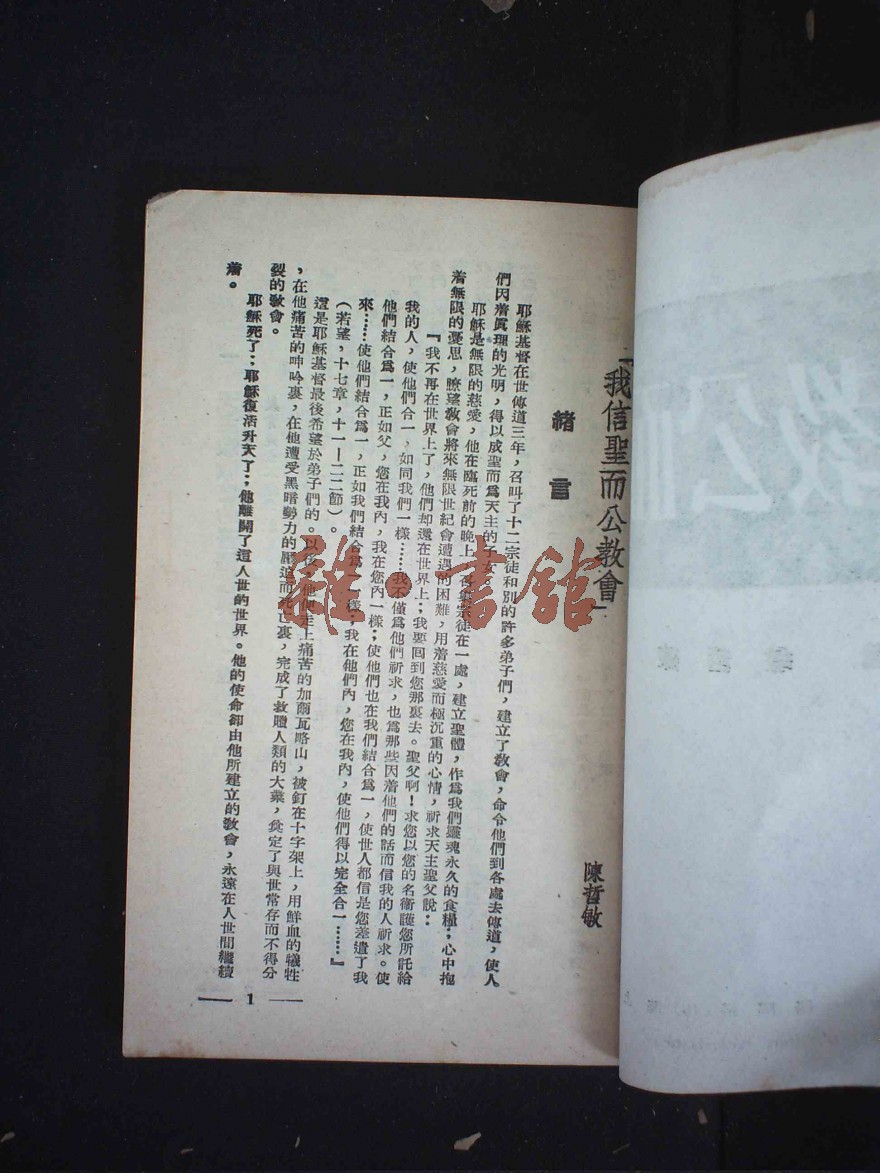 「我信聖而公教會」
陳哲敏
緒言
耶穌基督在世傳道三年，召叫了十二宗徒和別的許多弟子們，建立了教會，命令他們到各處去傳道，使人
們因着眞理的光明，得以成聖而爲天主的子女。
耶穌是無限的慈愛，他在臨死前的晚上，宗徒在一處，建立聖體，作爲我們靈魂永久的食糧；心中抱
着無限的憂思，瞭望教會將來無限世紀會遭遇的困難，用着慈愛而極沉重的心情，祈求天主聖父說：
『我不再在世界上了，他們却還在世界上；我要囘到您那裏去。聖父啊！求您以您的名衞護您所託給
我的人，使他們合一，如同我們一樣……我不僅爲他們祈求，也爲那些因着他們的話而信我的人祈求。使
他們結合爲一，正如父，您在我內，我在您內一樣；使他們也在我們結合爲一，使世人都信是您差遣了我
來……使他們結合爲一，正如我們結合爲一一樣，我在他們內，您在我內，使他們得以完全合一……』
（若望，十七章，十一—二二節）。
這是耶穌基督最後希望於弟子們的。以後，他便走上痛苦的加爾瓦略山，被釘在十字架上，用鮮血的犧牲
，在他痛苦的呻吟裏，在他遭受黑暗勢力的壓迫而死亡裏，完成了救贖人類的大業，奠定了與世常存而不得分
裂的教會。
耶穌死了；耶穌復活升天了；他離開了這人世的世界。他的使命卻由他所建立的教會，永遠在人世間繼續
着。
1
雜·書館